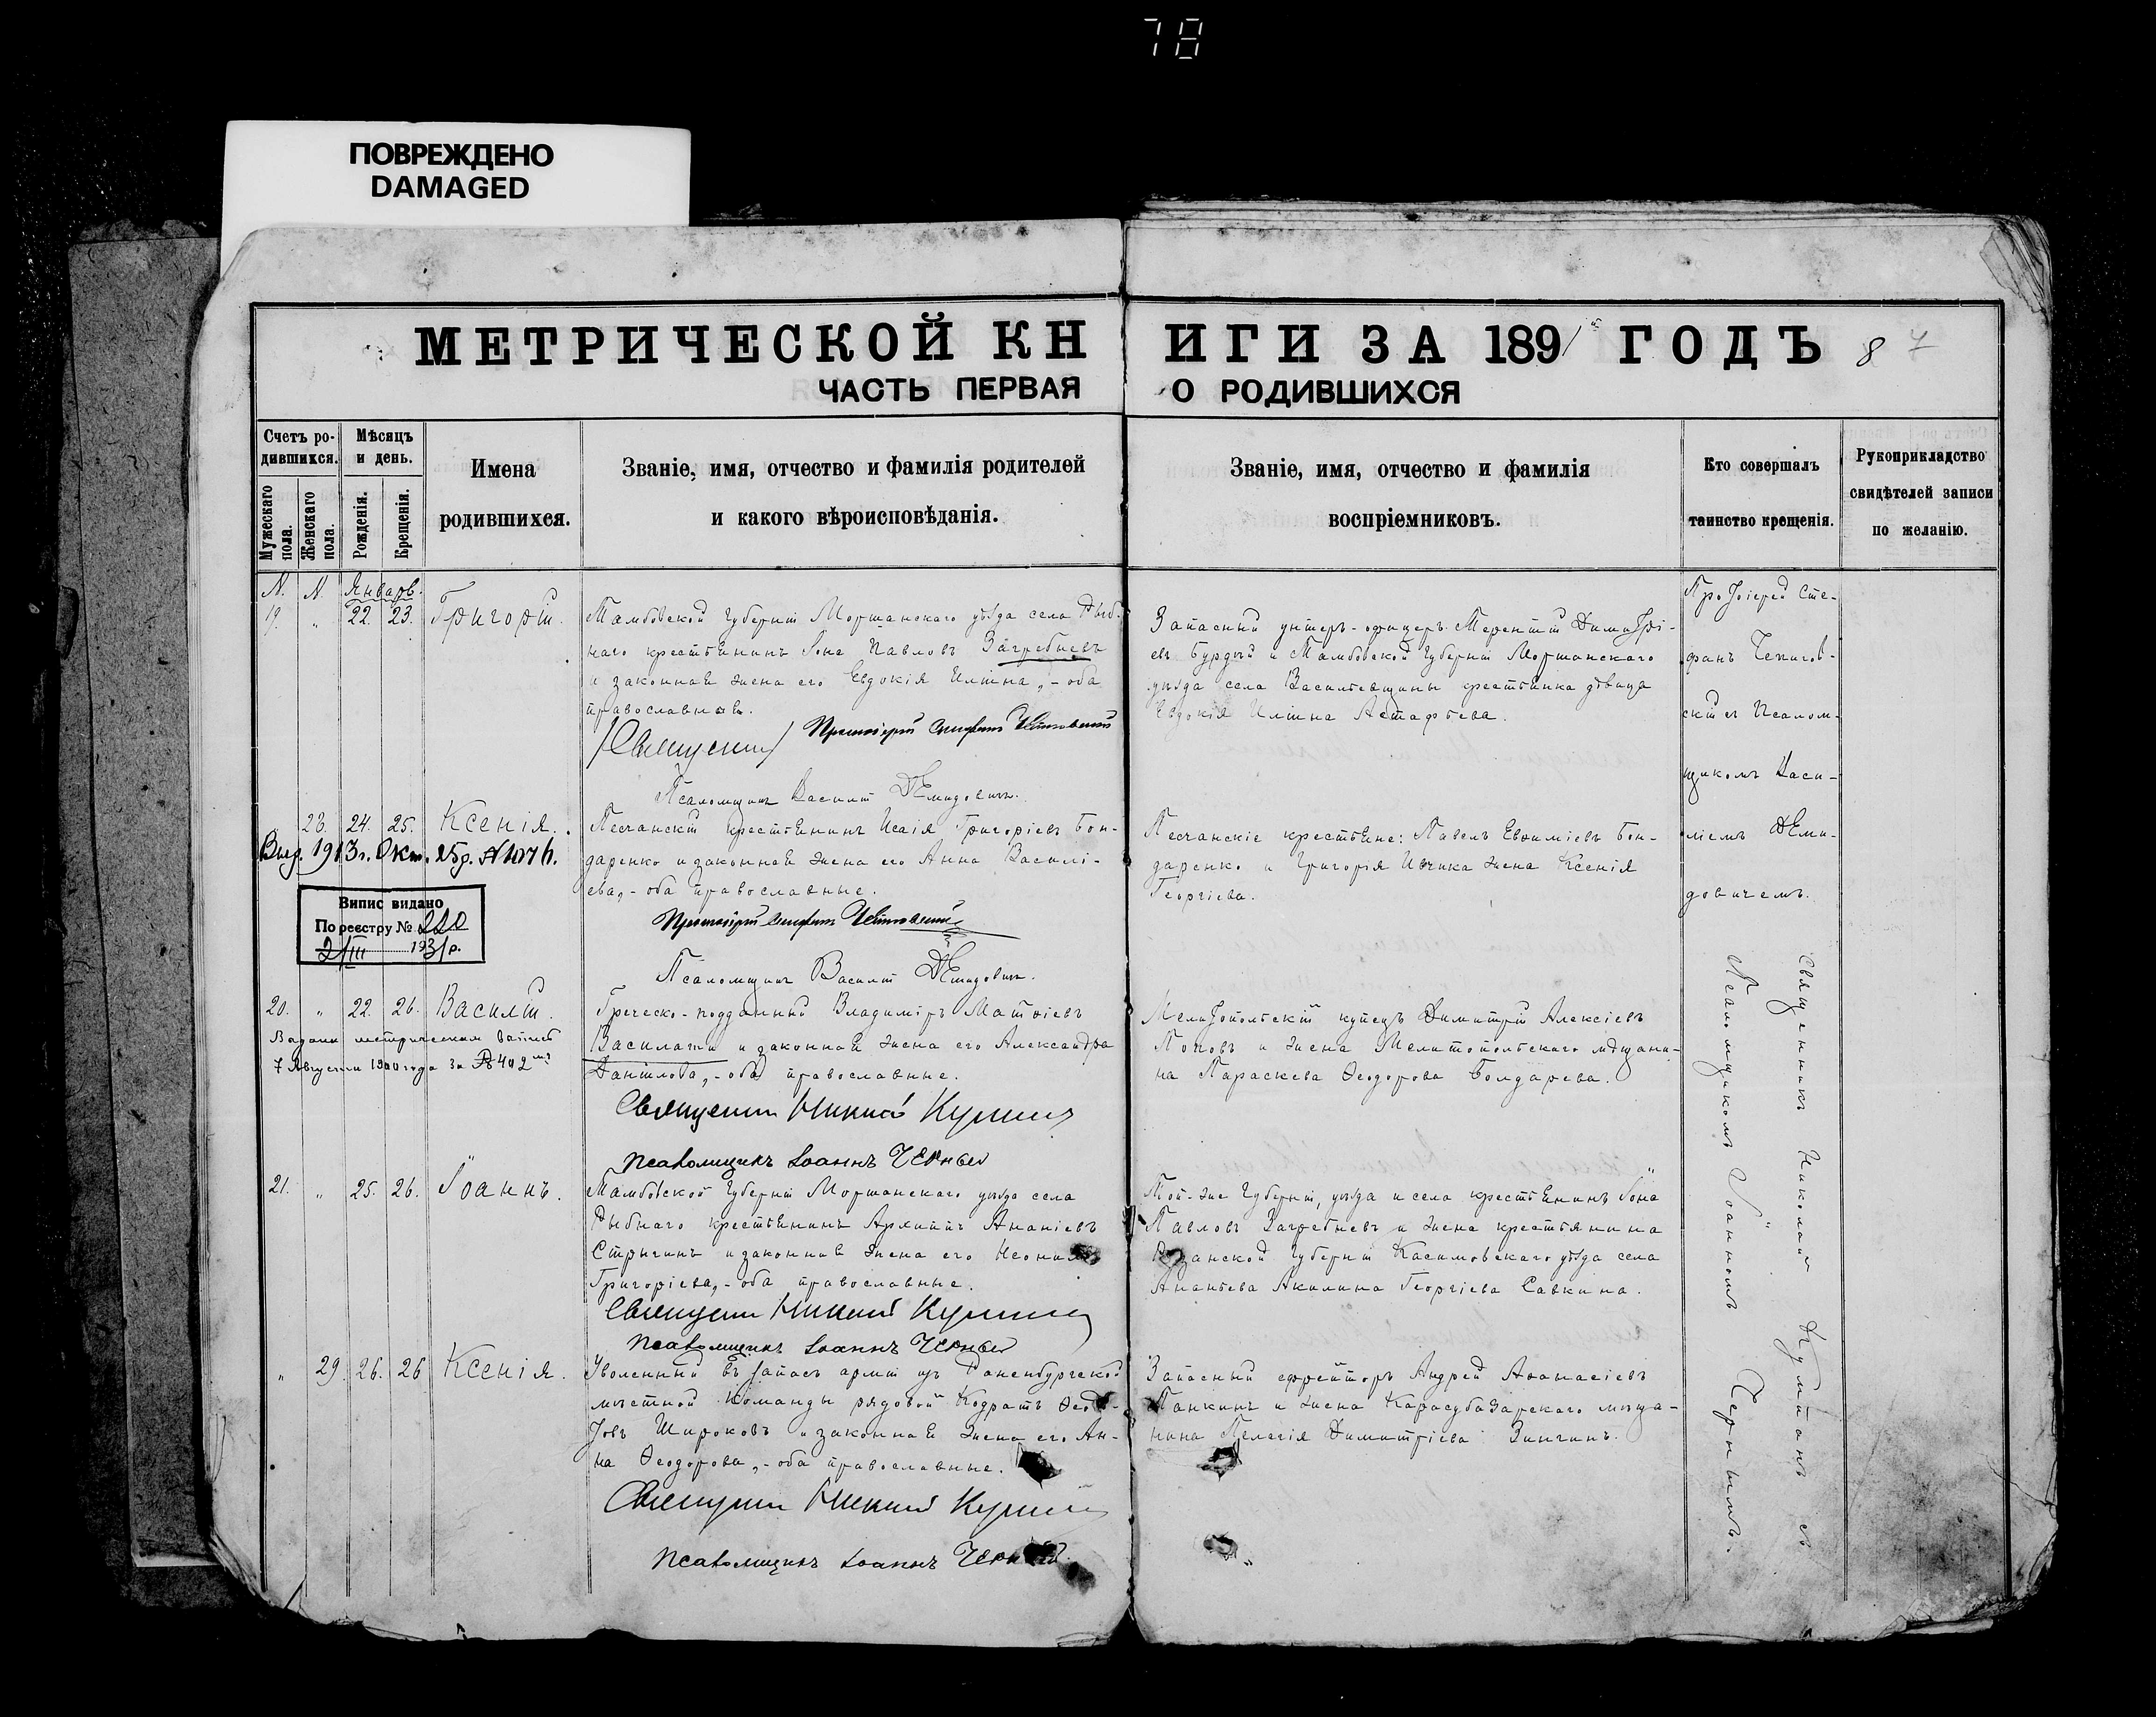 78
ПОВРЕЖДЕНО
DAMAGED
МЕТРИЧЕСКОЙ КНИГИ ЗА 1891 ГОДЪ 8 7
ЧАСТЬ ПЕРВАЯ О РОДИВШИХСЯ
Счетъ ро-
дившихся.
Мужескаго пола.
Женскаго пола.
Мѣсяцъ
и день.
Рожденія.
Крещенія.
Имена
родившихся.
Званіе, имя, отчество и фамилія родителей
и какого вѣроисповѣданія.
Званіе, имя, отчество и фамилія
воспріемниковъ.
Кто совершалъ
таинство крещенія.
Рукоприкладство
свидѣтелей записи
по желанію.
N. N. Январь.
19. " 22. 23. Григорій.
Тамбовской Губерніи Моршанскаго уѣзда села Рыб-
наго крестьянинъ Іона Павловъ Загребневъ
и законная жена его Евдокія Иліина, - оба
православные.
Протоіерей Стефанъ
Псаломщикъ Василій Демидовичъ.
Запасный унтеръ-офицеръ Терентій Димитрі-
евъ Бурдый и Тамбовской Губерніи Моршанскаго
уѣзда села Васильевщины крестьянка дѣвица
Евдокія Иліина Астафьева.
Протоіерей Сте-
фанъ
скій съ Псалом-
щикомъ Васи-
ліемъ Деми-
довичемъ.
23. 24. 25. Ксенія.
Выд. 1913 г. Окт. 25 д. №
Випис видано
По реєстру № 220
2/III 1931 р.
Песчанскій крестьянинъ Исаія Григоріевъ Бон-
даренко и законная жена его Анна Василі-
ева, - оба православные.
Протоіерей Стефанъ
Псаломщикъ Василій Демидовичъ.
Песчанскіе крестьяне: Павелъ Евфиміевъ Бон-
даренко и Григорія Ивчика жена Ксенія
Георгіева.
20. " 22. 26. Василій.
7 Августа 1900 года за № 402
Греческо-подданный Владиміръ Матвіевъ
Василаки и законная жена его Александра
Даніилова, - оба православные.
Священникъ Николай
Псаломщикъ Іоаннъ Черный
Мелитопольскій купецъ Димитрій Алексіевъ
Поповъ и жена Мелитопольскаго мѣщани-
на Параскева Ѳеодорова Болдарева.
Священникъ Николай съ
Псаломщикомъ Іоанномъ Чернымъ.
21. " 25. 26. Іоаннъ.
Тамбовской Губерніи Моршанскаго уѣзда села
Рыбнаго крестьянинъ Архиппъ Ананіевъ
Стрыгинъ и законная жена его Неонила
Григоріева, - оба православные.
Священникъ Николай
Псаломщикъ Іоаннъ Черный
Той-же Губерніи, уѣзда и села крестьянинъ Іона
Павловъ Загребневъ и жена крестьянина
Рязанской Губерніи Касимовскаго уѣзда села
Ананьева Акилина Георгіева Савкина.
" 29. 26. 26 Ксенія.
Уволенный въ запасъ арміи изъ Раненбургской
мѣстной Команды рядовой Кодратъ Ѳедо-
товъ Широковъ и законная жена его Ан-
на Ѳеодорова, - оба православные.
Священникъ Николай
Псаломщикъ Іоаннъ Черный.
Запасный ефрейторъ Андрей Аѳанасіевъ
Панкинъ и жена Карасубазарскаго мѣща-
нина Пелагія Димитріева Зинчинъ.